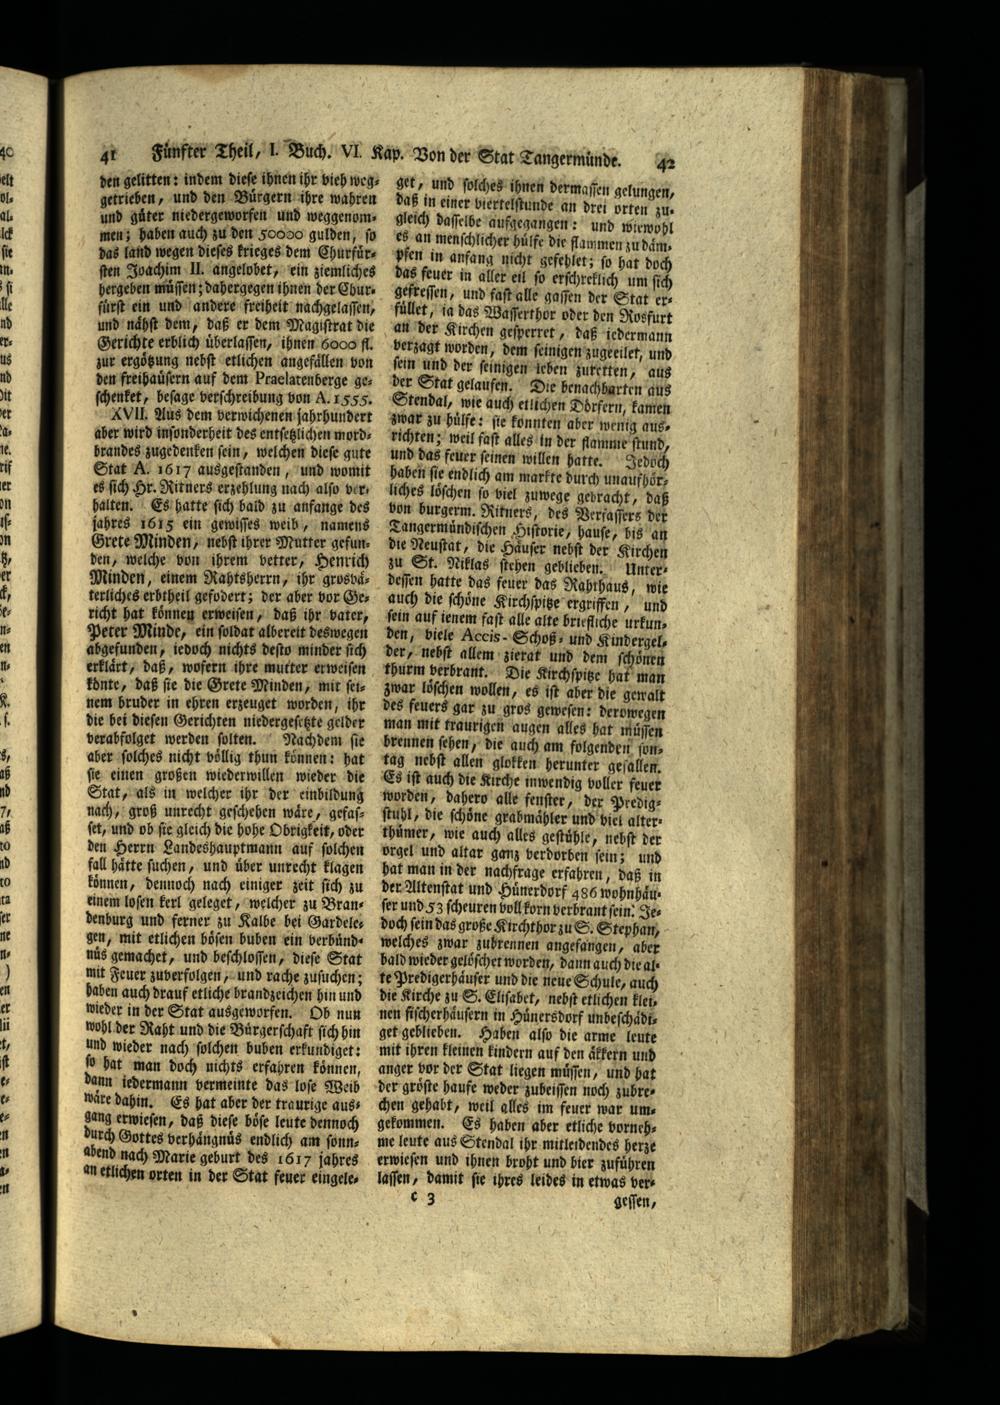 41 Fünfter Theil, I. Buch. VI. Kap. Von der Stat Tangermünde. 42
den gelitten: indem diese ihnen ihr vieh weg-
getrieben, und den Bürgern ihre wahren
und güter niedergeworfen und weggenom-
men; haben auch zu den 50000 gulden, so
das land wegen dieses krieges dem Churfür-
sten Joachim II. angelobet, ein ziemliches
hergeben müssen; dahergegen ihnen der Chur-
fürst ein und andere freiheit nachgelassen,
und nähst dem, daß er dem Magistrat die
Gerichte erblich überlassen, ihnen 6000 fl.
zur ergötzung nebst etlichen angefällen von
den freihäusern auf dem Praelatenberge ge-
schenket, besage verschreibung von A. 1555.
XVII. Aus dem verwichenen jahrhundert
aber wird insonderheit des entsetzlichen mord-
brandes zugedenken sein, welchen diese gute
Stat A. 1617 ausgestanden, und womit
es sich Hr. Ritners erzehlung nach also ver-
halten. Es hatte sich bald zu anfange des
jahres 1615 ein gewisses weib, namens
Grete Minden, nebst ihrer Mutter gefun-
den, welche von ihrem vetter, Henrich
Minden, einem Rahtsherrn, ihr grosvä-
terliches erbtheil gefodert; der aber vor Ge-
richt hat können erweisen, daß ihr vater,
Peter Minde, ein soldat albereit deswegen
abgefunden, iedoch nichts desto minder sich
erklärt, daß, wofern ihre mutter erweisen
könte, daß sie die Grete Minden, mit sei-
nem bruder in ehren erzeuget worden, ihr
die bei diesen Gerichten niedergesetzte gelder
verabfolget werden solten. Nachdem sie
aber solches nicht völlig thun können: hat
sie einen großen wiederwillen wieder die
Stat, als in welcher ihr der einbildung
nach, groß unrecht geschehen wäre, gefas-
set, und ob sie gleich die hohe Obrigkeit, oder
den Herrn Landeshauptmann auf solchen
fall hätte suchen, und über unrecht klagen
können, dennoch nach einiger zeit sich zu
einem losen kerl geleget, welcher zu Bran-
denburg und ferner zu Kalbe bei Gardele-
gen, mit etlichen bösen buben ein verbünd-
nüs gemachet, und beschlossen, diese Stat
mit Feuer zuverfolgen, und rache zusuchen;
haben auch drauf etliche brandzeichen hin und
wieder in der Stat ausgeworfen. Ob nun
wohl der Raht und die Bürgerschaft sich hin
und wieder nach solchen buben erkundiget:
so hat man doch nichts erfahren können,
dann iedermann vermeinte das lose Weib
wäre dahin. Es hat aber der traurige aus-
gang erwiesen, daß diese böse leute dennoch
durch Gottes verhängnüs endlich am sonn-
abend nach Marie geburt des 1617 jahres
an etlichen orten in der Stat feuer eingele-
get, und solches ihnen dermassen gelungen,
daß in einer viertelstunde an drei orten zu-
gleich dasselbe aufgegangen: und wiewohl
es an menschlicher hülfe die flammen zu däm-
pfen in anfang nicht gefehlet; so hat doch
das feuer in aller eil so erschreklich um sich
gefressen, und fast alle gassen der Stat er-
füllet, ia das Wasserthor oder den Rosfurt
an der Kirchen gesperret, daß iedermann
verzagt worden, dem seinigen zugeeilet, und
sein und der seinigen leben zuretten, aus
der Stat gelaufen. Die benachbarten aus
Stendal, wie auch etlichen Dörfern, kamen
zwar zu hülfe: sie konnten aber wenig aus-
richten; weil fast alles in der flamme stund,
und das feuer seinen willen hatte. Jedoch
haben sie endlich am markte durch unaufhör-
liches löschen so viel zuwege gebracht, daß
von burgerm. Ritners, des Verfassers der
Tangermündischen Historie, hause, bis an
die Neustat, die Häuser nebst der Kirchen
zu St. Niklas stehen geblieben. Unter-
dessen hatte das feuer das Rahthaus, wie
auch die schöne Kirchspitze ergriffen, und
sein auf ienem fast alle alte briefliche urkun-
den, viele Accis- Schoß- und Kindergel-
der, nebst allem zierat und dem schönen
thurm verbrant. Die Kirchspitze hat man
zwar löschen wollen, es ist aber die gewalt
des feuers gar zu gros gewesen: derowegen
man mit traurigen augen alles hat müssen
brennen sehen, die auch am folgenden son-
tag nebst allen glokken herunter gefallen.
Es ist auch die Kirche inwendig voller feuer
worden, dahero alle fenster, der Predig-
stuhl, die schöne grabmähler und viel alter-
thümer, wie auch alles gestühle, nebst der
orgel und altar ganz verdorben sein; und
hat man in der nachfrage erfahren, daß in
der Altenstat und Hünerdorf 486 wohnhäu-
ser und 53 scheuren voll korn verbrant sein. Je-
doch sein das große Kirchthor zu S. Stephan,
welches zwar zubrennen angefangen, aber
bald wieder gelöschet worden, dann auch die al-
te Predigerhäuser und die neue Schule, auch
die Kirche zu S. Elisabet, nebst etlichen klei-
nen fischerhäusern in Hünersdorf unbeschädi-
get geblieben. Haben also die arme leute
mit ihren kleinen kindern auf den äkkern und
anger vor der Stat liegen müssen, und hat
der gröste haufe weder zubeissen noch zubre-
chen gehabt, weil alles im feuer war um-
gekommen. Es haben aber etliche vorneh-
me leute aus Stendal ihr mitleidendes herze
erwiesen und ihnen broht und bier zuführen
lassen, damit sie ihres leides in etwas ver-
c 3 gessen,